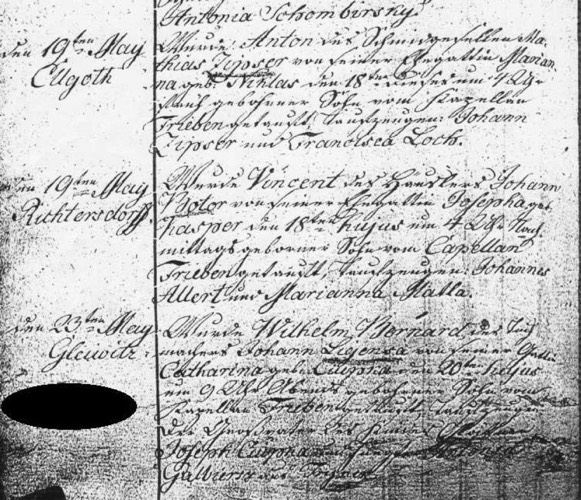 Antonia Schombirsky.
den 19ten May
Ellgoth
Wurde Anton des Schmidgesellen Ma-
thias Zipser von seiner Ehegattin Marian-
na geb: den 18ten dieses um 4 Uhr
früh geborner Sohn vom Kapellan
Trieben getauft, Taufzeugen: Johann
Zipser und Francisca Loch.
den 19ten May
Richtersdorf
Wurde Vincent des Häuslers Johann
von seiner Ehegattin Josepha geb:
Kasper den 18ten hujus um 4 Uhr Nach-
mittags geborner Sohn vom Capellan
Trieben getauft, Taufzeugen: Johannes
Allert und Marianna Matla.
den 23ten May
Gleiwitz
Wurde Wilhelm Bernard des Tuch-
machers Johann Ligensa von seiner Gattin
Catharina geb: den 20ten hujus
um 9 Uhr Abends geborner Sohn vom
Kapellan Trieben getauft, Taufzeugen
Der Großvater des Kindes
Joseph und
aus